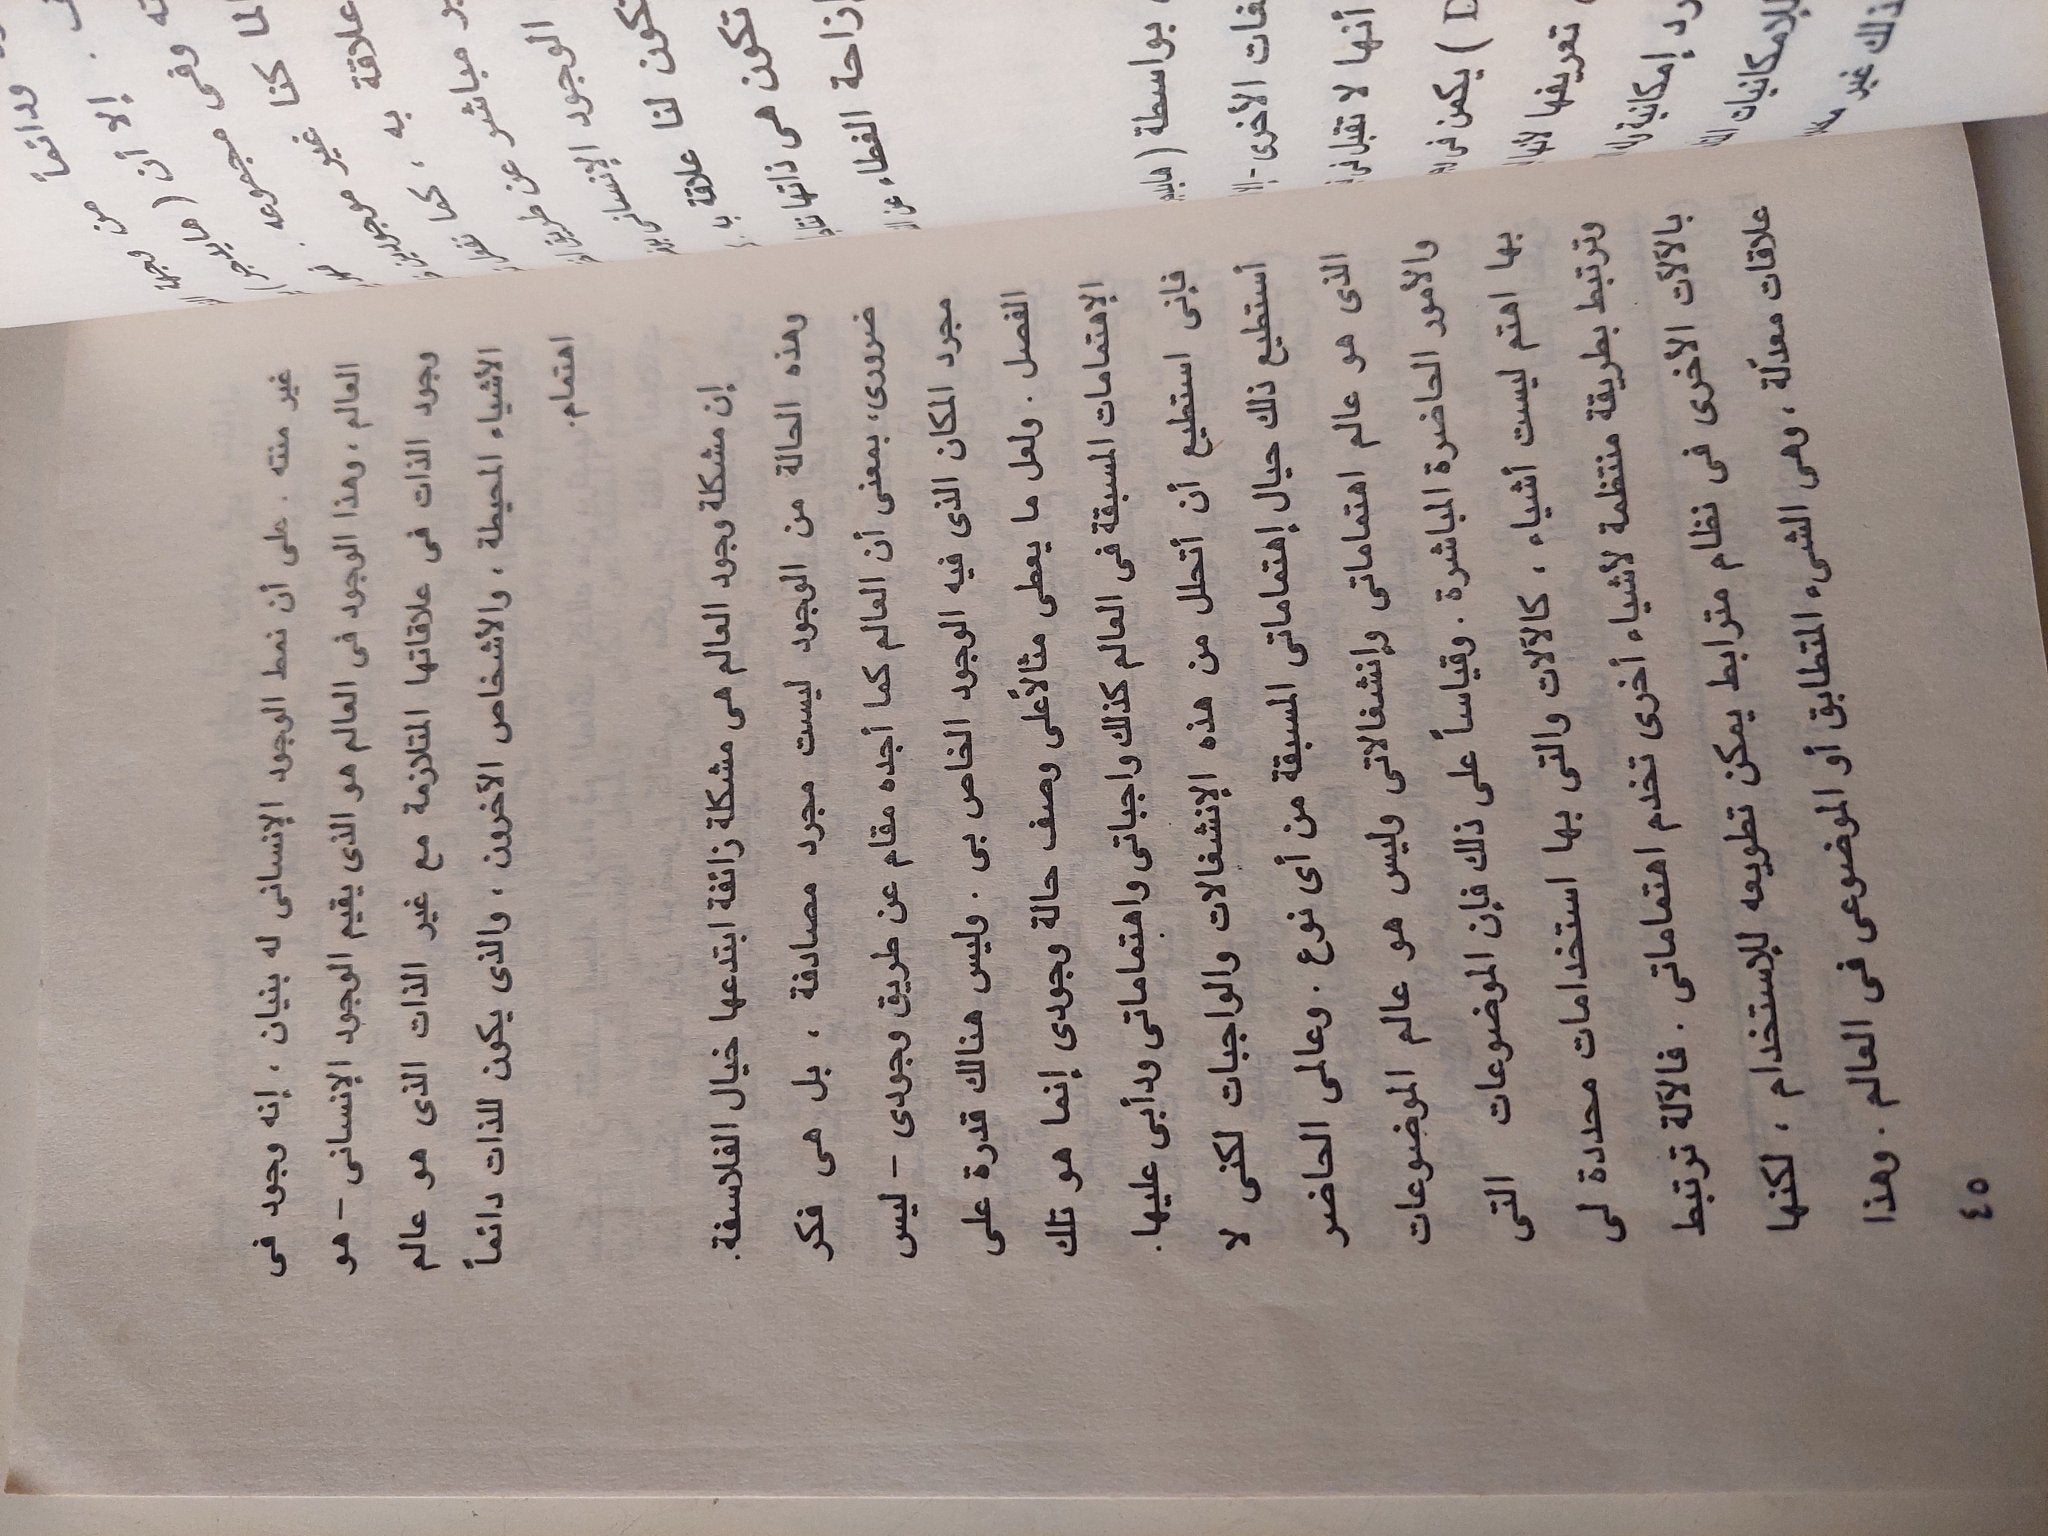 ودائماً
من وجهة
إلا أن ( هايدجر
وفى مجموعه .
لما كنا غير موجودين
علاقة به ، كما تقول
مباشر عن طريق
الوجود الإنسانى
تكون لنا علاقة
تكون هى ذاتها
إزاحة الغطاء عن
بواسطة (
الأخرى -
أنها لا تقبل فى
D ) يكمن فى
تعريفها
إمكانية
للإمكانيات
غير
غير منته . على أن نمط الوجود الإنسانى له بنيان ، إنه وجود فى
العالم ، وهذا الوجود فى العالم هو الذى يقيم الوجود الإنسانى - هو
وجود الذات فى علاقاتها المتلازمة مع غير الذات الذى هو عالم
الأشياء المحيطة ، والأشخاص الأخرون ، والذى يكون للذات دائماً
اهتمام.
إن مشكلة وجود العالم هى مشكلة زائفة ابتدعها خيال الفلاسفة.
وهذه الحالة من الوجود ليست مجرد مصادفة ، بل هى فكر
ضرورى، بمعنى أن العالم كما أجده مقام عن طريق وجودى - ليس
مجرد المكان الذى فيه الوجود الخاص بى . وليس هنالك قدرة على
الفصل . ولعل ما يعطى مثالاً على وصف حالة وجودى إنما هو تلك
الإهتمامات المسبقة فى العالم كذلك واجباتى واهتماماتى ودأبى عليها.
فإنى استطيع أن أتحلل من هذه الإنشغالات والواجبات لكنى لا
أستطيع ذلك حيال إهتماماتى المسبقة من أى نوع . وعالمى الحاضر
الذى هو عالم اهتماماتى وإنشغالاتى وليس هو عالم الموضوعات
والأمور الحاضرة المباشرة . وقياساً على ذلك فإن الموضوعات التى
بها اهتم ليست أشياء ، كالآلات والتى بها استخدامات محددة لى
وترتبط بطريقة منتظمة لأشياء أخرى تخدم اهتماماتى . فالآلة ترتبط
بالآلات الأخرى فى نظام مترابط يمكن تطويعه للإستخدام ، لكنها
علاقات معدّلة ، وهى الشىء المتطابق أو الموضوعى فى العالم . وهذا
٤٥